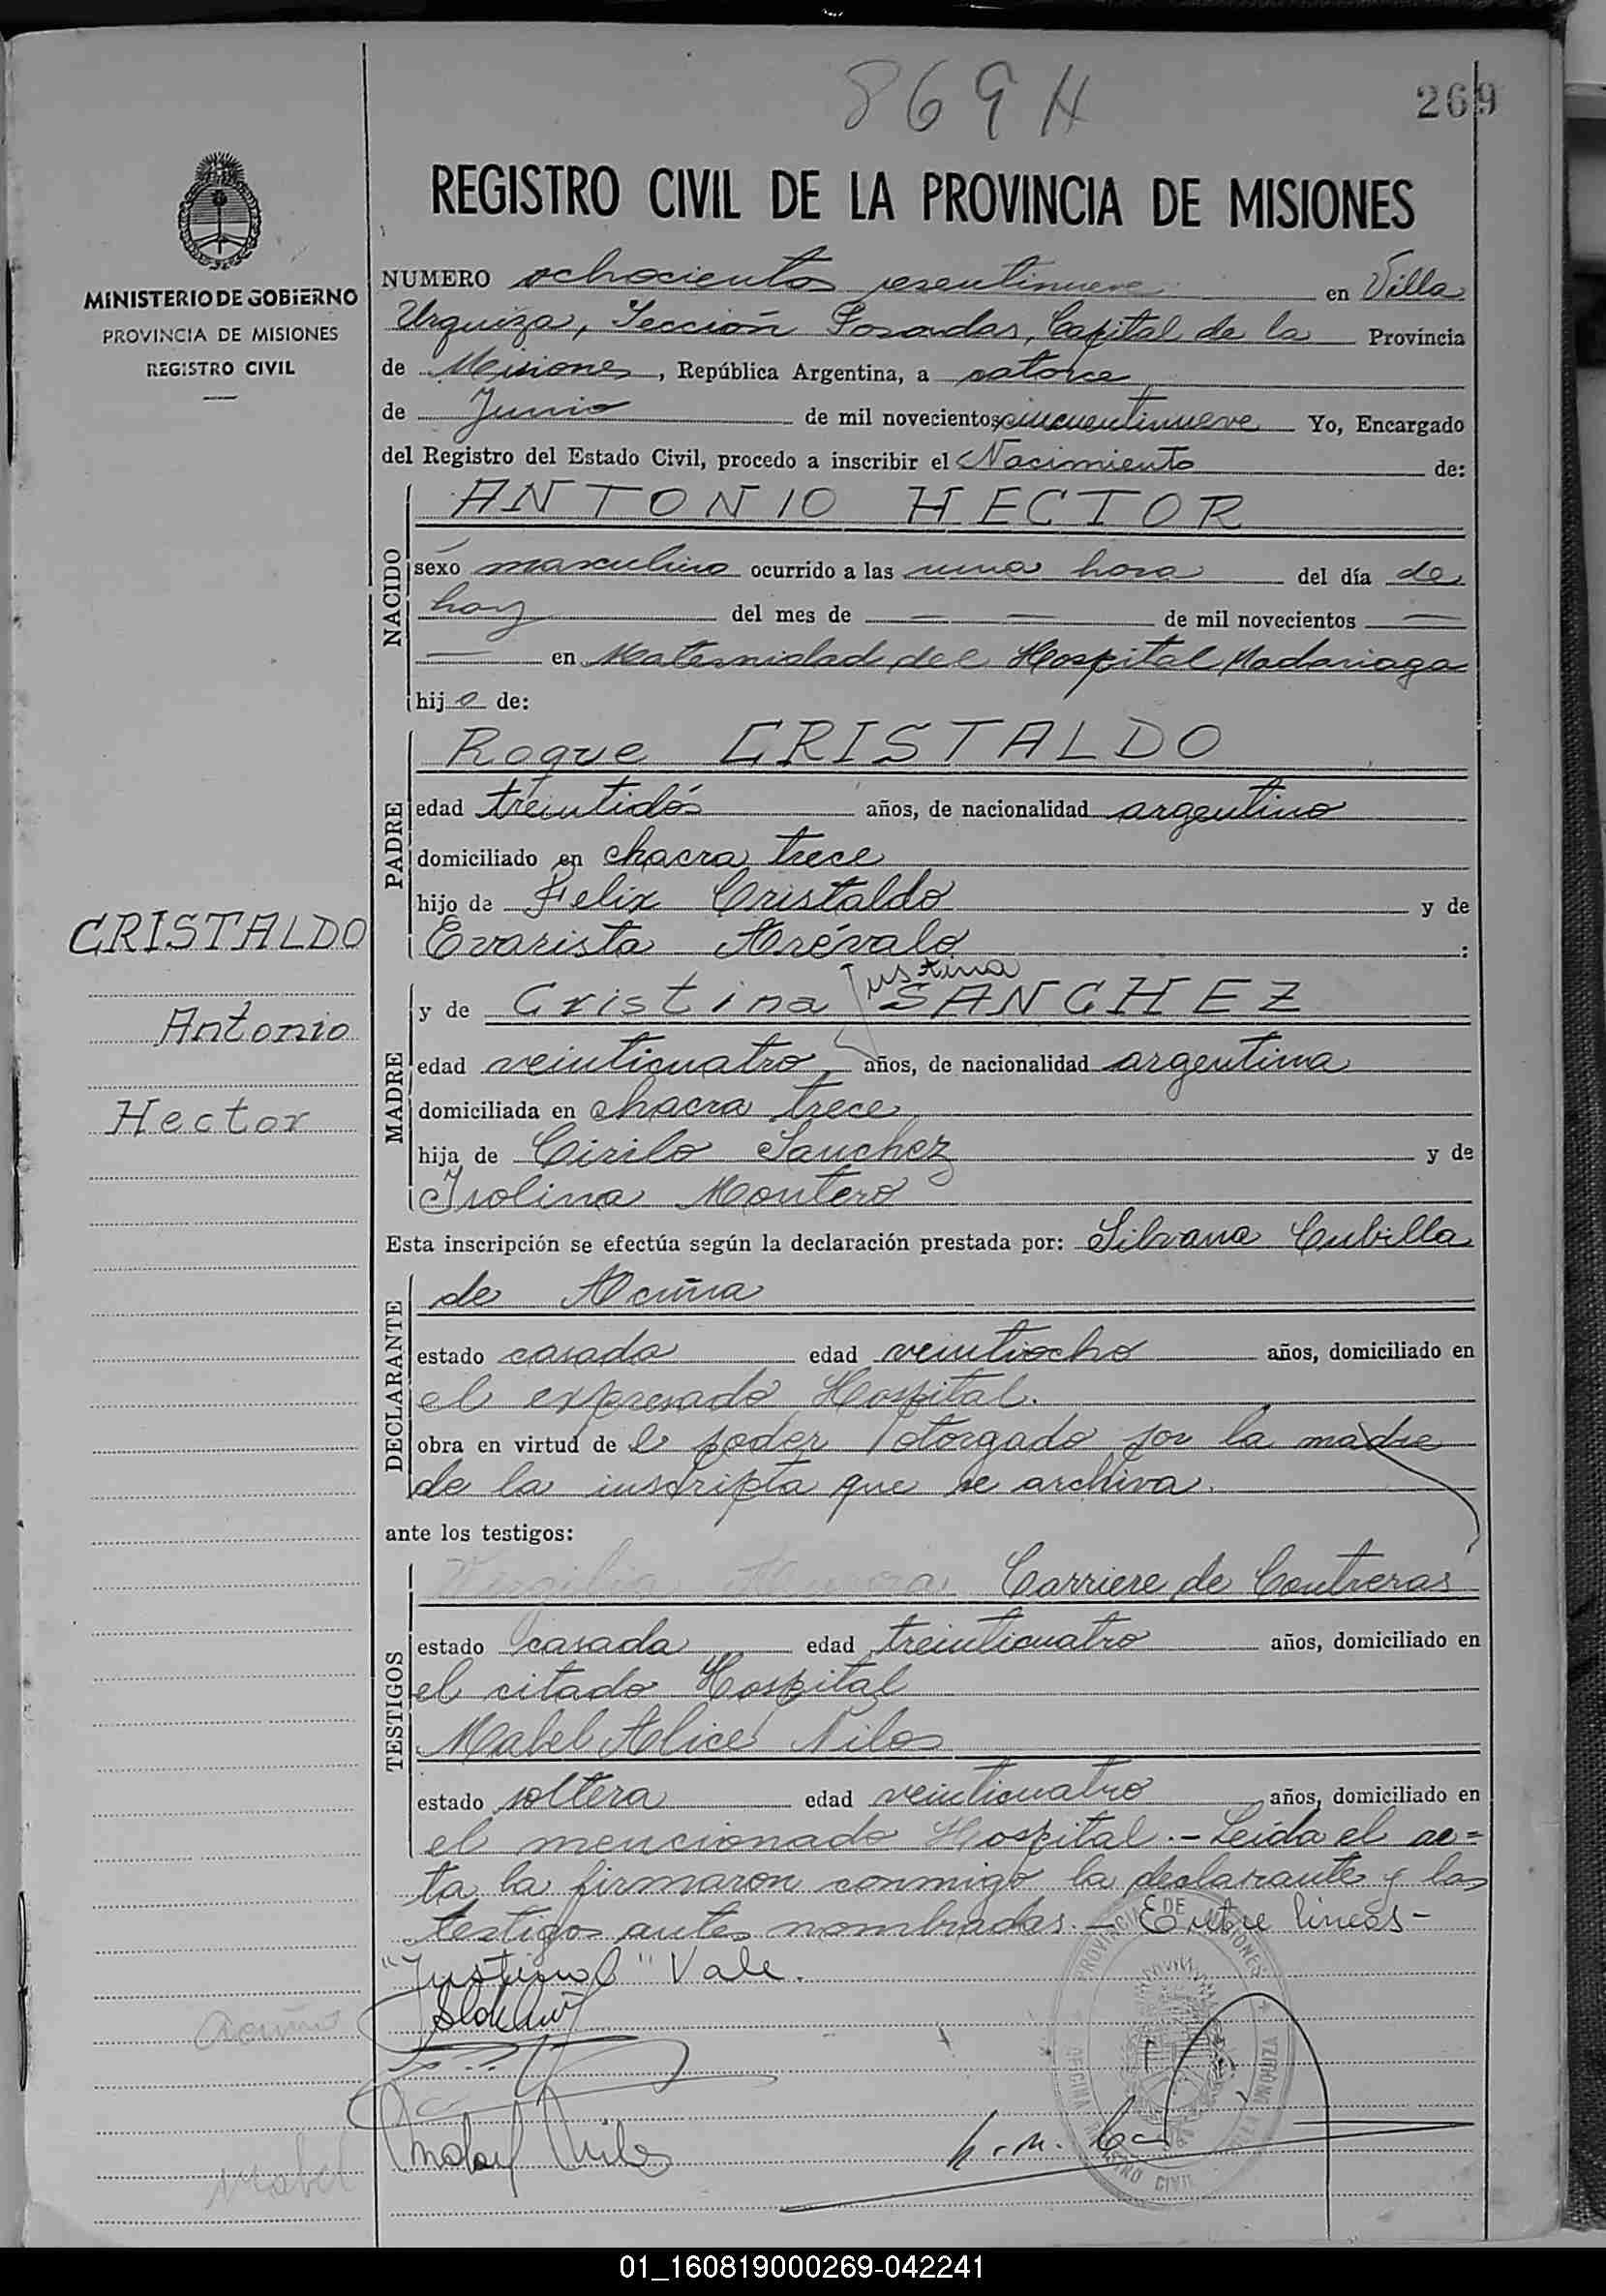 869 H
269
REGISTRO CIVIL DE LA PROVINCIA DE MISIONES
MINISTERIO DE GOBIERNO
PROVINCIA DE MISIONES
REGISTRO CIVIL
CRISTALDO
Antonio
Hector
NUMERO ochocientos sesentinueve en Villa
Urquiza, Sección Posadas, Capital de la Provincia
de Misiones, República Argentina, a catorce
de Junio de mil novecientos cincuentinueve Yo, Encargado
del Registro del Estado Civil, procedo a inscribir el Nacimiento de:
NACIDO
ANTONIO HECTOR
sexo masculino ocurrido a las una hora del día de
hoy del mes de — — de mil novecientos —
— en Maternidad del Hospital Madariaga
hijo de:
PADRE
Roque CRISTALDO
edad treintidós años, de nacionalidad argentino
domiciliado en chacra trece
hijo de Felix Cristaldo y de
Evarista Arévalo :
MADRE
Justina
y de Cristina SANCHEZ
edad veinticuatro años, de nacionalidad argentina
domiciliada en chacra trece
hija de Cirilo Sanchez y de
Isolina Montero
Esta inscripción se efectúa según la declaración prestada por: Silvana Cubilla
DECLARANTE
de Acuña
estado casada edad veintiocho años, domiciliado en
el expresado Hospital.
obra en virtud de el poder otorgado por la madre
de la inscripta que se archiva.
ante los testigos:
TESTIGOS
Virgilia Carriere de Contreras
estado casada edad treinticuatro años, domiciliado en
el citado Hospital
Mabel Alice Niles
estado soltera edad veinticuatro años, domiciliado en
el mencionado Hospital.- Leída el ac=
ta la firmaron conmigo la declarante y las
testigos antes nombradas.- Entre líneas-
"Justina" Vale.
Acuña
Mabel
Mabel Niles
PROVINCIA DE MISIONES
OFICINA REGISTRO CIVIL VILLA URQUIZA
01_160819000269-042241